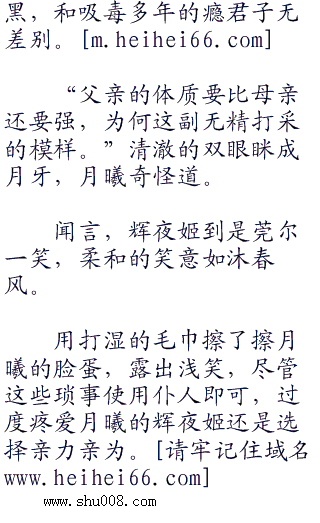 黑，和吸毒多年的瘾君子无
差别。[m.heihei66.com]
“父亲的体质要比母亲
还要强，为何这副无精打采
的模样。”清澈的双眼眯成
月牙，月曦奇怪道。
闻言，辉夜姬到是莞尔
一笑，柔和的笑意如沐春
风。
用打湿的毛巾擦了擦月
曦的脸蛋，露出浅笑，尽管
这些琐事使用仆人即可，过
度疼爱月曦的辉夜姬还是选
择亲力亲为。[请牢记住域名
www.heihei66.com]
www.shu008.com